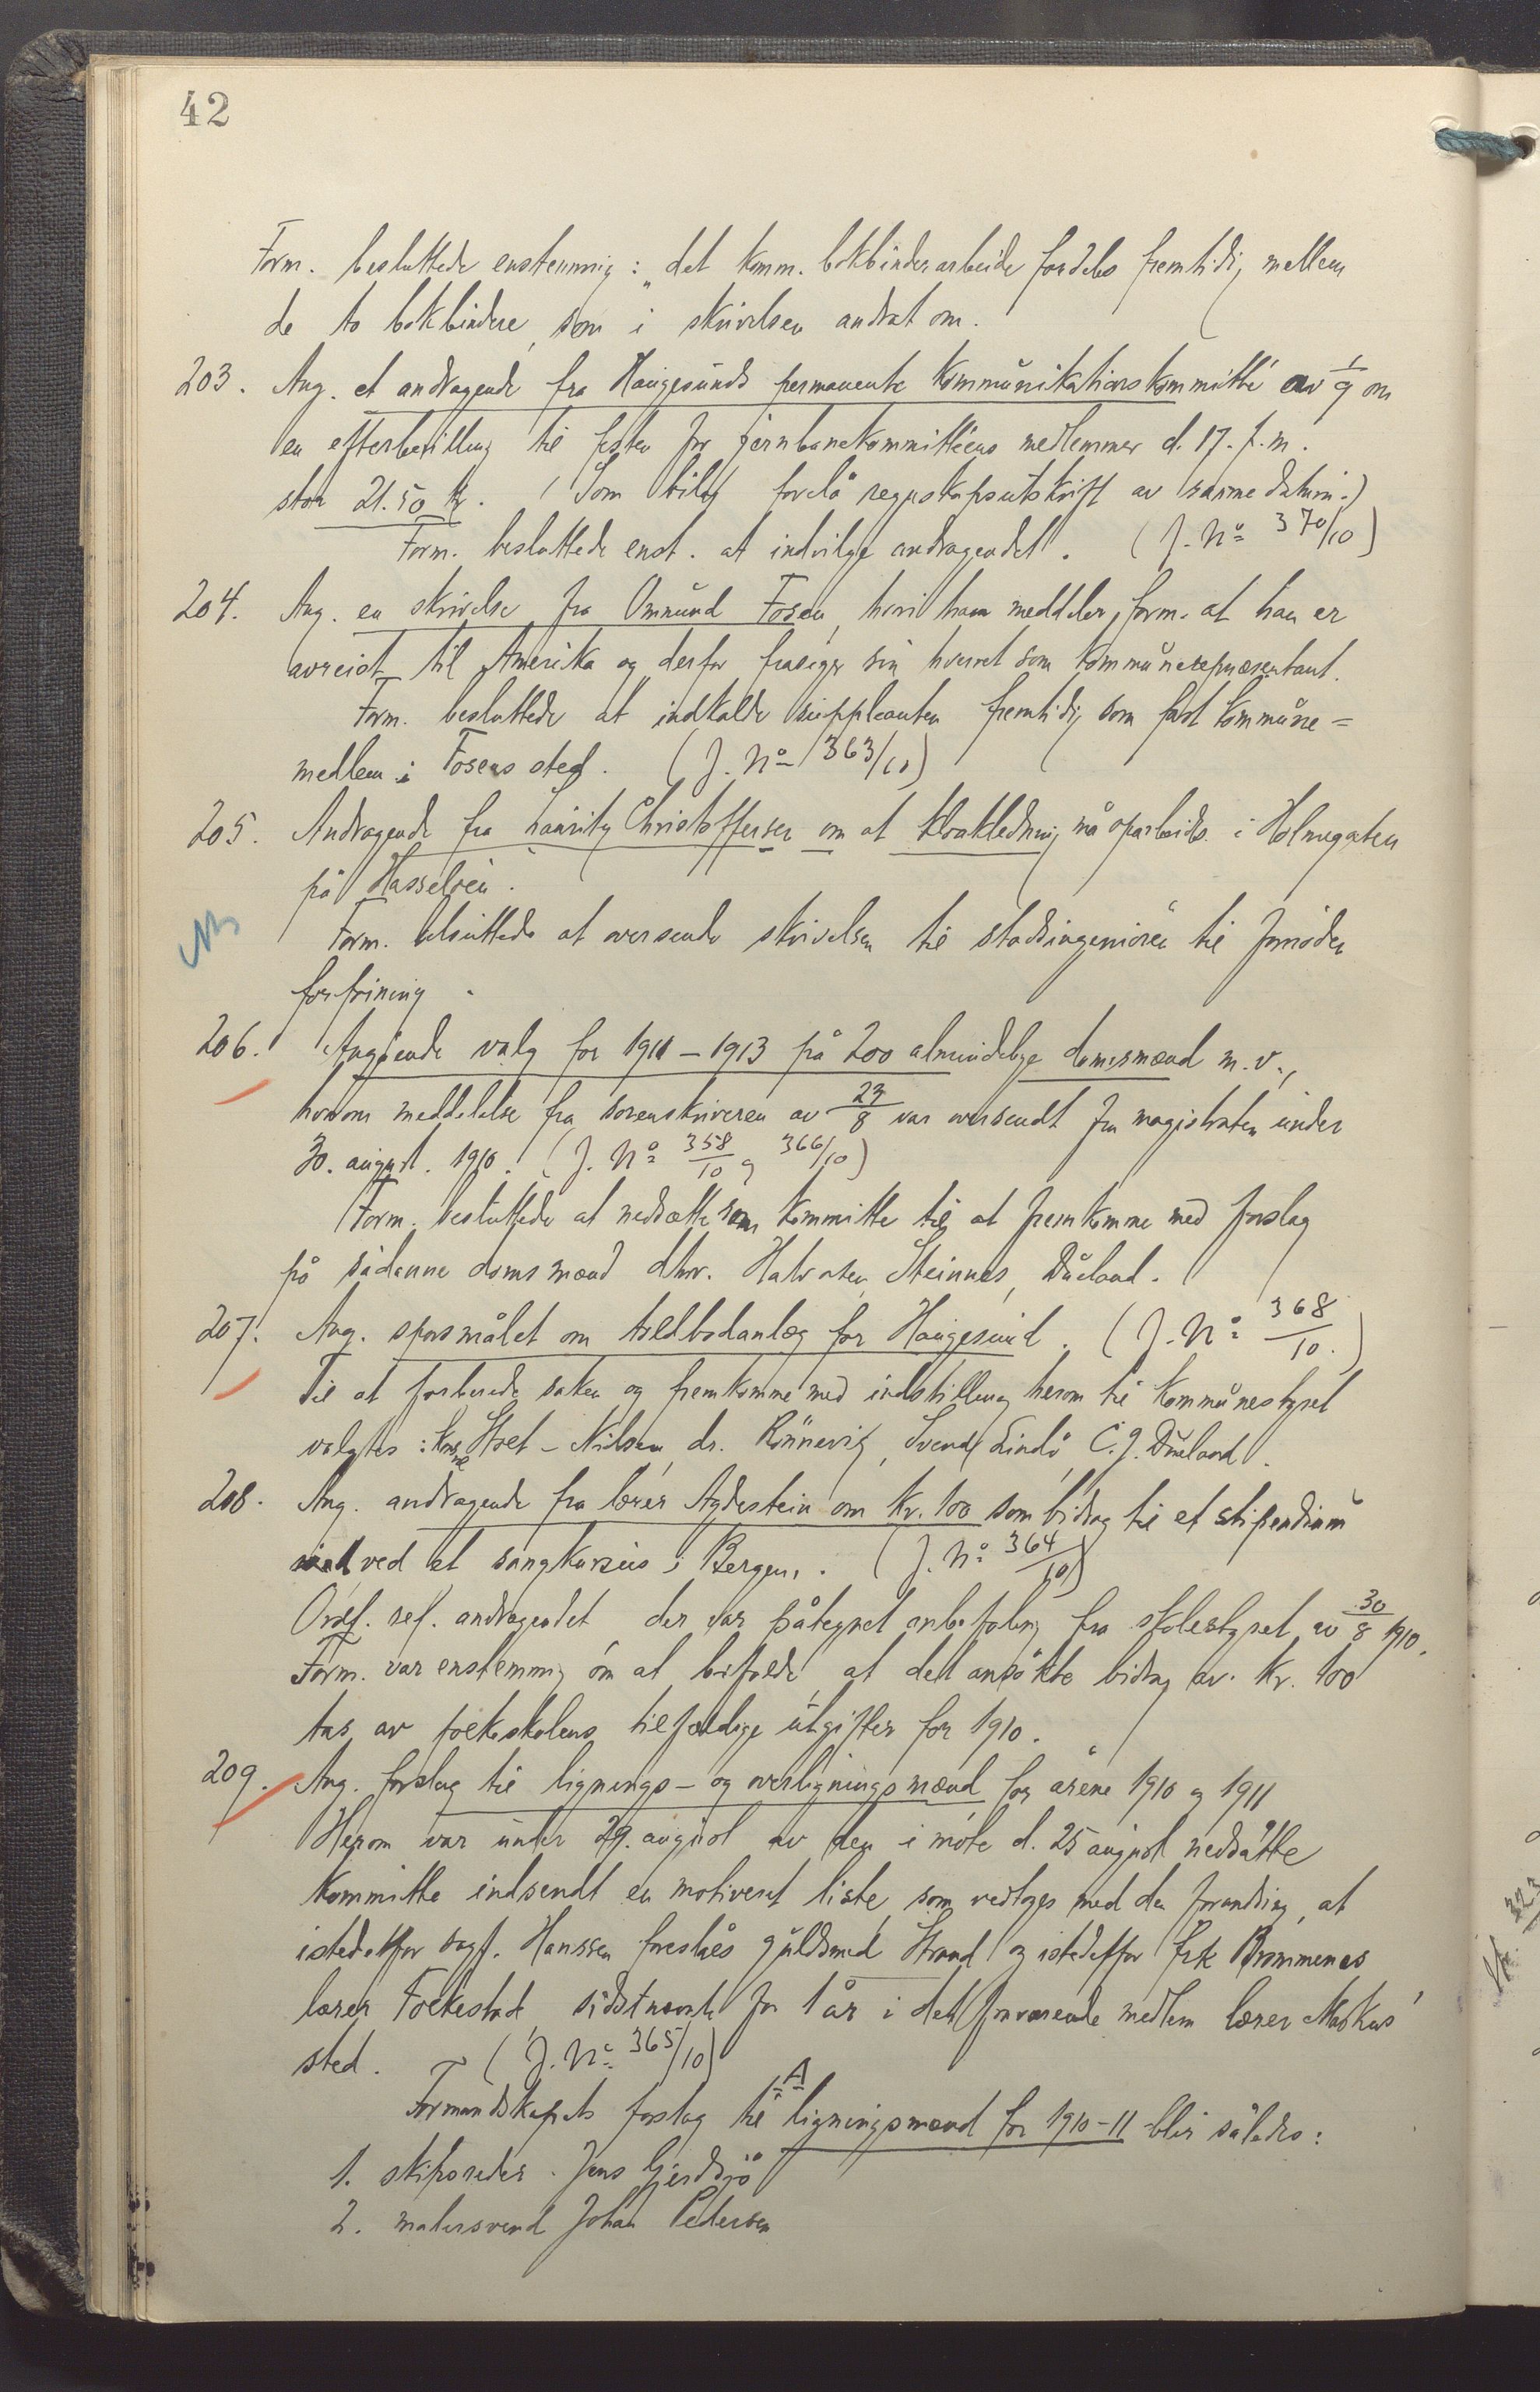 42
Form. besluttede enstemmig: „det komm. bokbinderarbeide fordeles fremtidig mellem
de to bokbindere, som i skrivelsen andrat om.
203. Ang. et andragende fra Haugesunds permanente kommunikationskommitté av 1/9 om
en efterbevilling til festen for jernbanekommittéens medlemmer d. 17. f.m.
stor 21.50 kr. (Som bilag forelå regnskapsutskrift av samme datum.)
Form. besluttede enst. at indvilge andragendet. (J. No 370/10)
204. Ang. en skrivelse fra Ommund Fosen, hvori han meddeler form. at han er
avreist til Amerika og derfor frasiger sin hvervet som kommunerepræsentant.
Form. besluttede at indkalde suppleanten fremtidig som fast kommune=
medlem i Fosens sted. (J. No 363/10)
205. Andragende fra Lauritz Christoffersen om at kloakledning må oparbeides i Holmegaten
på Hasseløen.
Form. besluttede at oversende skrivelsen til stadsingeniøren til fornøden
forføining.
206. Angående valg for 1911–1913 på 200 almindelige domsmænd m.v.,
hvorom meddelelse fra sorenskriveren av 23/8 var oversendt fra magistraten under
30. august. 1910. (J. No 358/10 og 366/10)
Form. besluttede at nedsætte som kommitte til at fremkomme med forslag
på sådanne domsmænd dhr. Halvorsen, Steinnes, Dueland.
207. Ang. spørsmålet om toldbodanlæg for Haugesund. (J. No 368/10.)
Til at forberede saken og fremkomme med indstilling herom til kommunestyret
valgtes: Stoel-Nilsen, dr. Rönnevig, Svend Lindö, C. J. Dueland.
208. Ang. andragende fra lærer Aydestein om kr. 100 som bidrag til et stipendium
ved et sangkursus i Bergen. (J. No 364/10)
Ordf. ref. andragendet der var påtegnet anbefaling fra skolestyret av 30/8 1910.
Form. var enstemmig om at bifalde, at det ansökte bidrag av kr. 100
tas av folkeskolens tilfældige utgifter for 1910.
209. Ang. forslag til lignings– og overligningsmænd for årene 1910 og 1911
Herom var under 29. august av den i møte d. 25 august nedsatte
kommitte indsendt en motiveret liste, som vedtoges med den forandring, at
istedetfor sagf. Hanssen foreslåes guldsmed Strand og istedetfor frk Brommenes
lærer Folkestad, sidstnævnte for 1 år i det forværende medlem lærer Markus'
sted. (J. No 365/10)
Formandskapets forslag til A ligningsmænd for 1910–11 blir således:
1. skibsreder Jens Gjerdsjö
2. malersvend Johan Pedersen